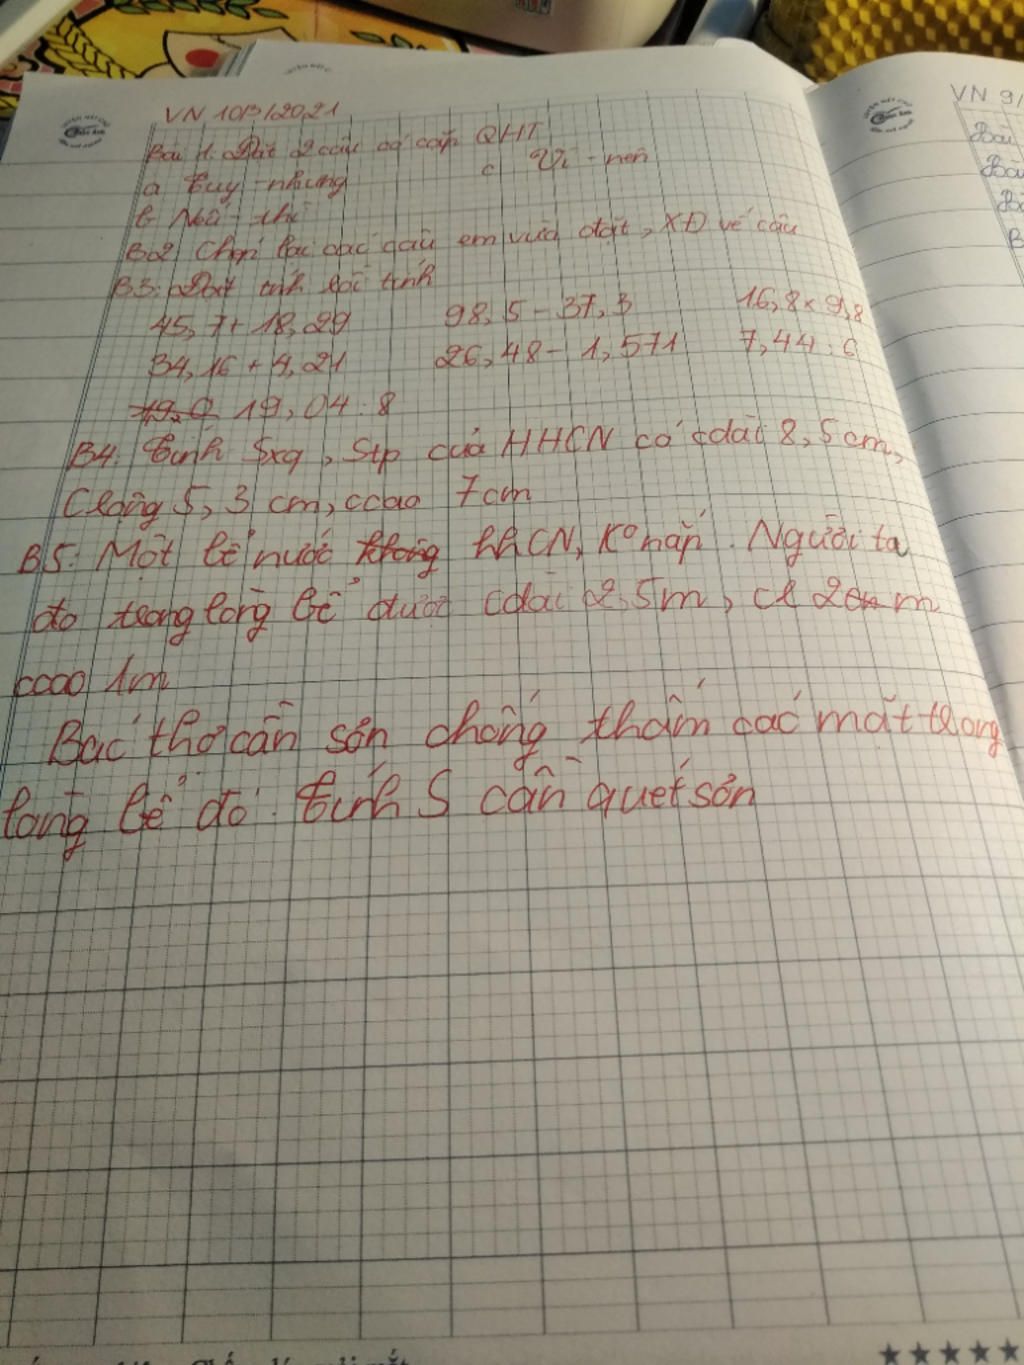 VN 10/3/2021
Bài 1. Đặt 2 câu có cặp QHT
a Tuy - nhưng
c Vì - nên
b Nếu - thì
B2 Chọn lại các câu em vừa đặt, XĐ vế câu
B3: Đặt tính rồi tính
45,7 + 18,29 98,5 - 37,3 16,8 x 9,8
34,16 + 4,21 26,48 - 1,571 7,44 : 6
19,04 : 8
B4. Tính Sxq, Stp của HHCN có cdài 8,5cm,
Crộng 5,3 cm, ccao 7cm
B5: Một bể nước hhCN, Ko nắp. Người ta
đo trong lòng bể được cdài 2,5m, cr 2m
ccao 1m
Bác thợ cần sơn chống thấm các mặt trong
lòng bể đó. Tính S cần quét sơn
VN 9/
Bài
Bài
B
★★★★★